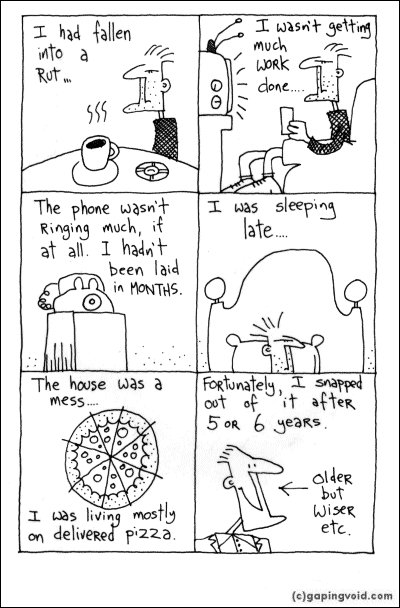 I had fallen
into a
Rut...
I wasn't getting
much
WORK
done....
The phone wasn't
Ringing much, if
at all. I hadn't
been laid
in MONTHS.
I was sleeping
late....
The house was a
mess....
I was living mostly
on delivered pizza.
Fortunately, I snapped
out of it after
5 OR 6 years.
Older
but
Wiser
etc.
(c)gapingvoid.com